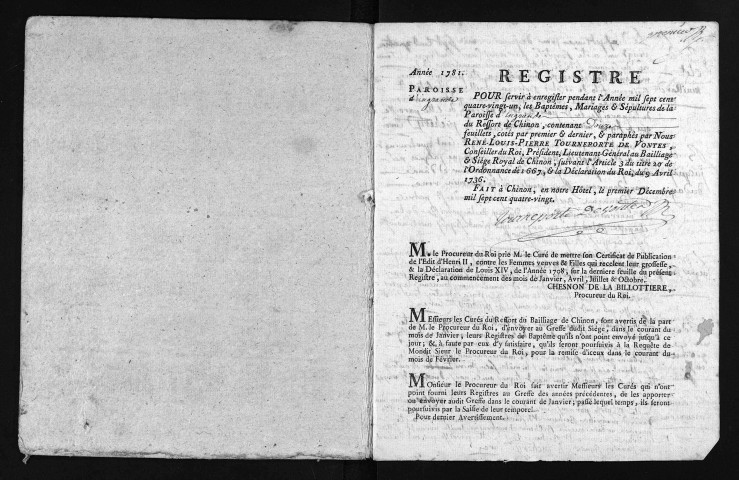 Année 1781.
PAROISSE
d'ingrande
REGISTRE
POUR servir à enregistrer pendant l'Année mil sept cent
quatre-vingt-un, les Baptêmes, Mariages & Sépultures de la
Paroisse d'ingrande
du Ressort de Chinon, contenant Douze
feuillets, cotés par premier & dernier, & paraphés par Nous
RENÉ-LOUIS-PIERRE TOURNEPORTE DE VONTES,
Conseiller du Roi, Président, Lieutenant Général au Bailliage
& Siége Royal de Chinon, suivant l'Article 3 du titre 20 de
l'Ordonnance de 1667, & la Déclaration du Roi, du 9 Avril
1736.
FAIT à Chinon, en notre Hôtel, le premier Décembre
mil sept cent quatre-vingt.
Tourneporte de vontes
M. le Procureur du Roi prie M. le Curé de mettre son Certificat de Publication
de l'Edit d'Henri II, contre les Femmes veuves & Filles qui recelent leur grossesse,
& la Déclaration de Louis XIV, de l'Année 1708, sur la derniere feuille du présent
Registre, au commencement des mois de Janvier, Avril, Juillet & Octobre.
CHESNON DE LA BILLOTTIERE,
Procureur du Roi.
Messieurs les Curés du Ressort du Bailliage de Chinon, sont avertis de la part
de M. le Procureur du Roi, d'envoyer au Greffe dudit Siége, dans le courant du
mois de Janvier; leurs Registres de Baptême qu'ils n'ont point envoyé jusqu'à ce
jour; &, à faute par eux d'y satisfaire, qu'ils seront poursuivis à la Requête de
Mondit Sieur le Procureur du Roi, pour la remise d'iceux dans le courant du
mois de Février.
Monsieur le Procureur du Roi fait avertir Messieurs les Curés qui n'ont
point fourni leurs Registres au Greffe des années précédentes, de les apporter
ou envoyer audit Greffe dans le courant de Janvier; passé lequel temps, ils seront
poursuivis par la Saisie de leur temporel.
Pour dernier Avertissement.